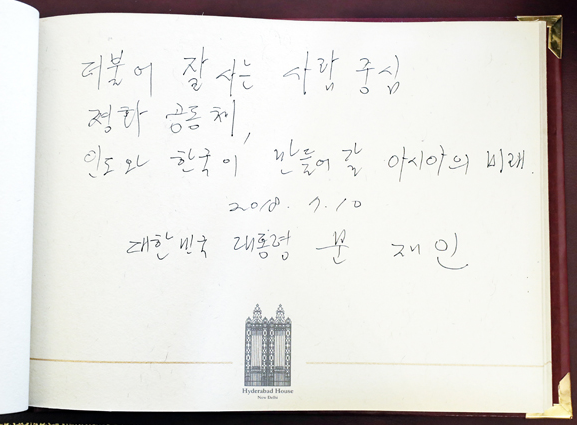 더불어 잘 사는 사람 중심
평화 공동체,
인도와 한국이 만들어 갈 아시아의 미래.
2018. 7. 10
대한민국 대통령 문 재인
Hyderabad House
New Delhi